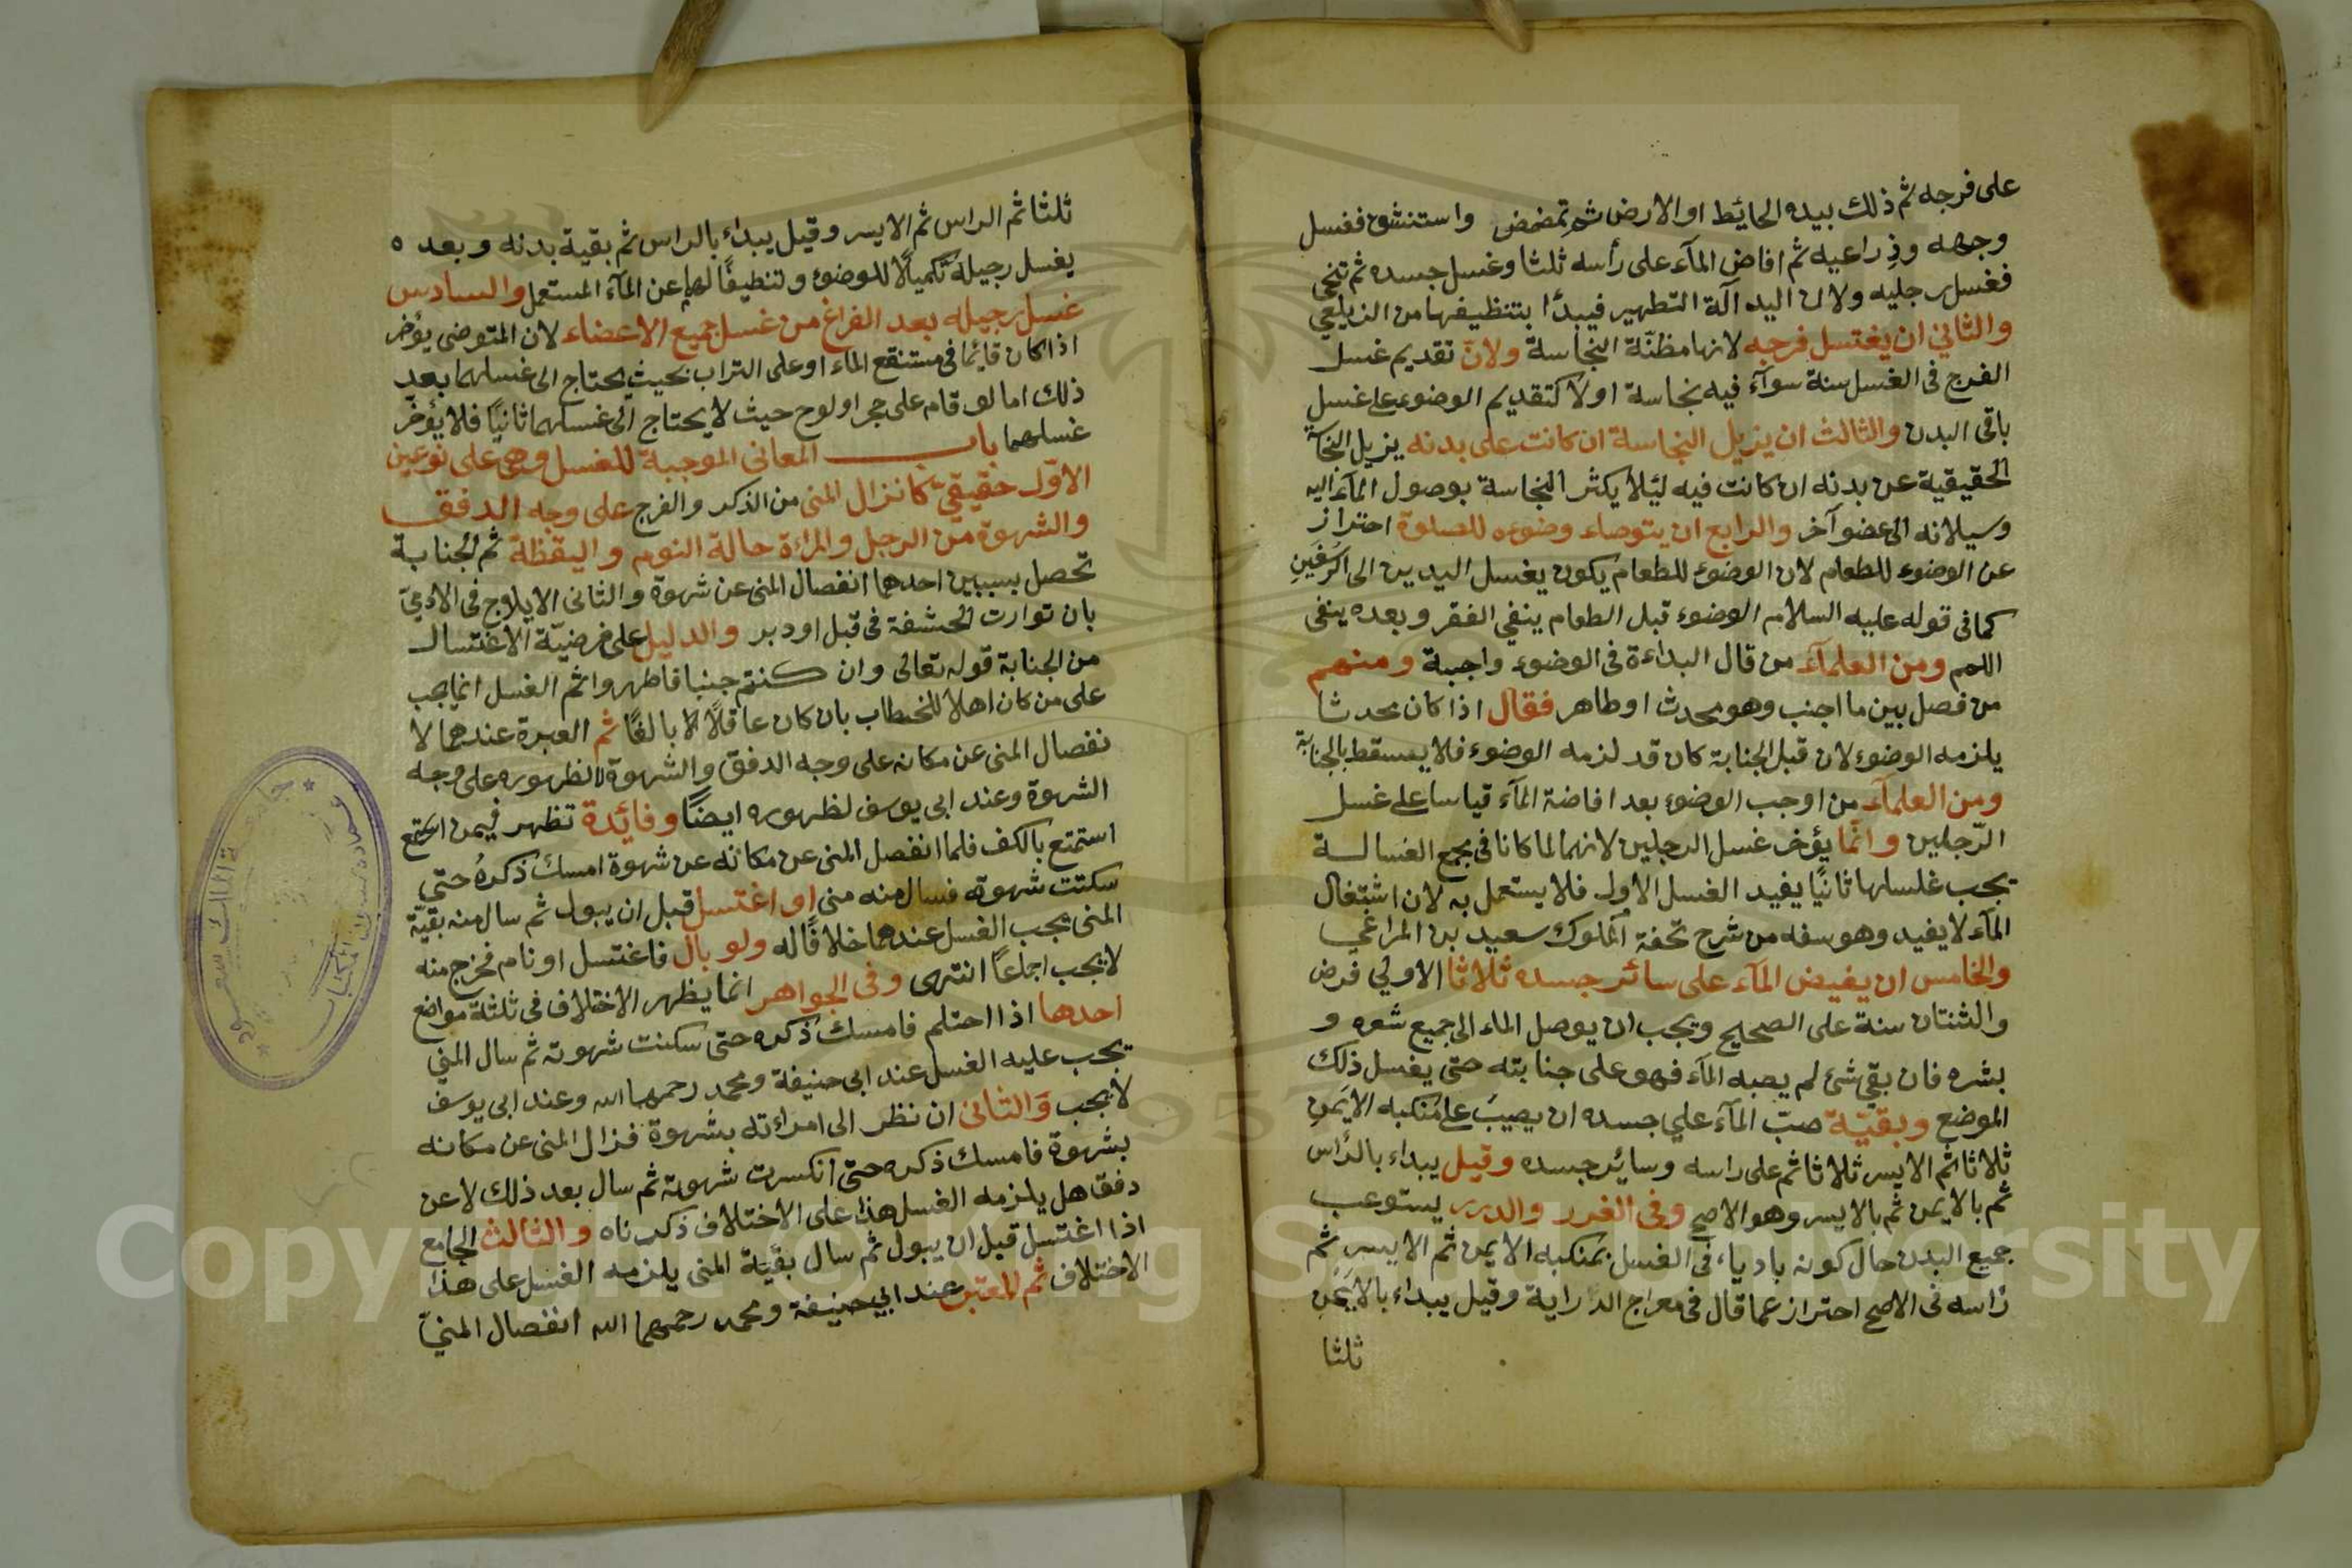 على فرجه ثم ذلك بيده الحائط او الارض ثم تمضمض واستنشق فغسل
وجهه وذراعيه ثم افاض المآء على رأسه ثلثا وغسل جسده ثم تنحى
فغسل رجليه ولان اليد آلة التطهير فيبدٔا بتنظيفها من الزيلعي
والثاني ان يغتسل فرجه لانها مظنّة النجاسة ولانّ تقديم غسل
الفرج فى الغسل سنة سوآء فيه نجاسة اولا كتقديم الوضوء على غسل
باقى البدن والثالث ان يزيل النجاسة ان كانت على بدنه يزيل النجاسة
الحقيقية عن بدنه ان كانت فيه لئلا يكثر النجاسة بوصول المآء اليه
وسيلانه الى عضو آخر والرابع ان يتوضاء وضوءه للصلوة احتراز
عن الوضوء للطعام لان الوضوء للطعام يكون يغسل اليدين الى الرسغين
كما فى قوله عليه السلام الوضوء قبل الطعام ينفي الفقر وبعده ينفى
اللمم ومن العلمآء من قال البداءة فى الوضوء واجبة ومنهم
من فصل بين ما اجنب وهو محدث او طاهر فقال اذا كان محدثا
يلزمه الوضوء لان قبل الجنابة كان قد لزمه الوضوء فلا يسقط بالجنابة
ومن العلمآء من اوجب الوضوء بعد افاضة المآء قياسا على غسل
الرّجلين وانّما يؤخر غسل الرجلين لانهما لما كانا فى مجمع الغسالة
يجب غلسلها ثانيًا يفيد الغسل الاول فلا يستعمل به لان اشتغال
المآء لا يفيد وهو سفه من شرح تحفة الملوك سعيد بن المراغي
والخامس ان يفيض المآء على سائر جسده ثلاثا الاولي فرض
والثنتان سنة على الصحيح ويجب ان يوصل الماء الى جميع شعره و
بشره فان بقي شئ لم يصبه المآء فهو على جنابته حتى يغسل ذلك
الموضع وبقيّة صبّ المآء علي جسده ان يصيبَ على منكبه الايمن
ثلاثا ثم الايسر ثلاثا ثم على راسه وسائر جسده وقيل يبداء بالرٔاس
ثم بالايمن ثم بالايسر وهو الاصح وفى الغرر والدرر يستوعب
جميع البدن حال كونه باديا، فى الغسل بمنكبه الايمن ثم الايسر ثم
رٔاسه فى الاصح احتراز عما قال فى معراج الدراية وقيل يبداء بالايمن
ثلثا
ثلثا ثم الراس ثم الايسر وقيل يبداء بالراس ثم بقية بدنه وبعده
يغسل رجيله تكميلًا للوضوء ولتنظيفًا لها عن المآء المستعمل والسادس
غسل رجيله بعد الفراغ من غسل جميع الاعضاء لان المتوضى يؤخر
اذا كان قائما فى مستنقع الماء او على التراب بحيث يحتاج الى غسلهما بعد
ذلك اما لو قام على حجر او لوح حيث لا يحتاج الى غسلهما ثانيًا فلا يؤخر
غسلهما باب المعانى الموجبة للغسل وهى على نوعين
الاوّل حقيقي كانزال المنى من الذكر والفرج على وجه الدفق
والشهوة من الرجل والمراة حالة النوم واليقظة ثم الجنابة
تحصل بسببين احدهما انفصال المنى عن شهوة والثانى الايلاج فى الادميّ
بان توارت الحشفة فى قبل او دبر والدليل على فرضيّة الاغتسال
من الجنابة قوله تعالى وان كنتم جنبا فاطهروا ثم الغسل انما يجب
على من كان اهلا للخطاب بان كان عاقلًا بالغًا ثم العبرة عندهما لا
نفصال المنى عن مكانه على وجه الدفق والشهوة لا لظهوره على وجه
الشهوة وعند ابى يوسف لظهوره ايضًا وفائدة تظهر فيمن استمع
استمتع بالكف فلما انفصل المنى عن مكانه عن شهوة امسك ذكرهُ حتى
سكتت شهوته فسال منه منى او اغتسل قبل ان يبول ثم سال منه بقيّة
المنى يجب الغسل عندهما خلافًا له ولو بال فاغتسل او نام فخرج منه
لا يجب اجماعًا انتهى وفى الجواهر انما يظهر الاختلاف فى ثلثة مواضع
احدها اذا احتلم فامسك ذكره حتى سكنت شهوته ثم سال المني
يجب عليه الغسل عند ابى حنيفة ومحمد رحمهما الله وعند ابى يوسف
لا يجب والثانى ان نظر الى امراته بشهوة فزال المنى عن مكانه
بشهوة فامسك ذكره حتى انكسرت شهوته ثم سال بعد ذلك لا عن
دفق هل يلزمه الغسل هذا على الاختلاف ذكرناه والثالث الجامع
اذا اغتسل قبل ان يبول ثم سال بقيّة المنى يلزمه الغسل على هذا
الاختلاف ثم المعتبر عند ابي حنيفة ومحمد رحمهما الله انفصال المنيّ
جامعة الملك سعود
عمادة شؤون المكتبات
Copyright © King Saud University
1957